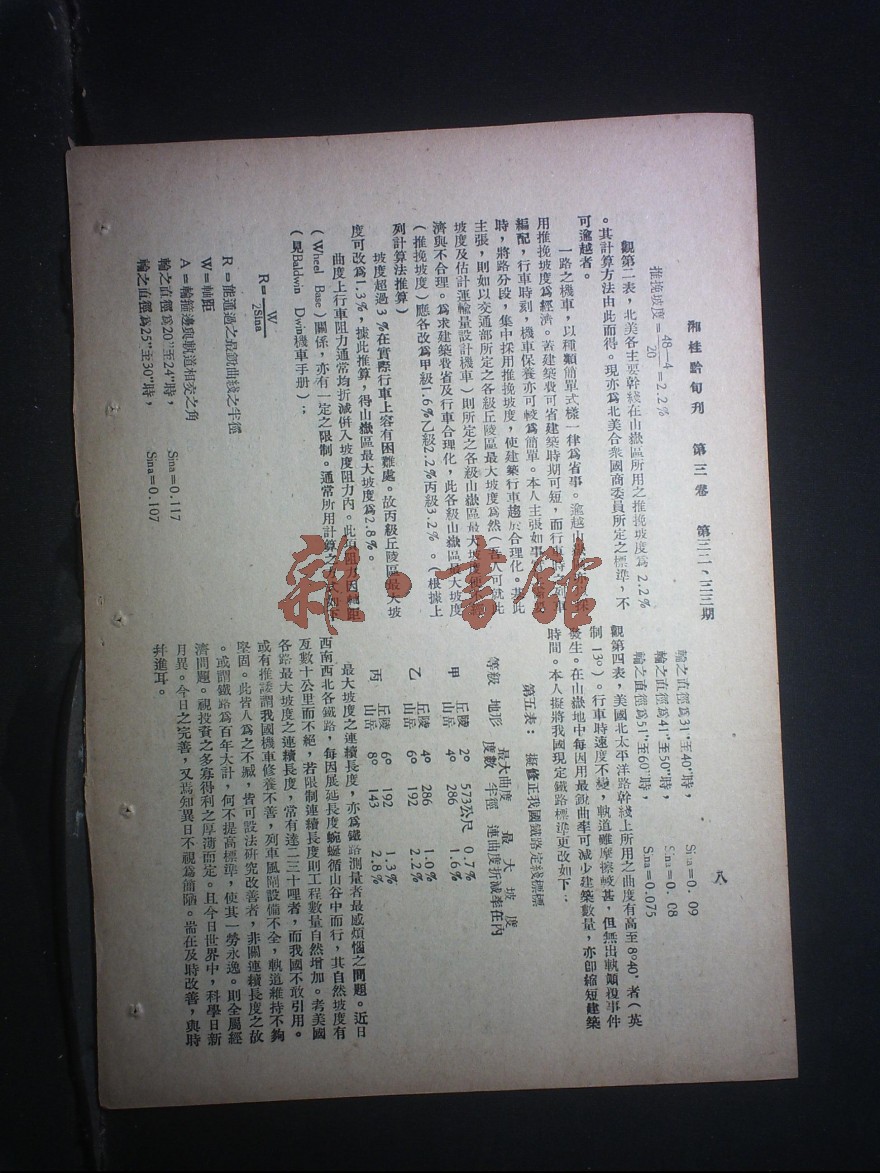 湘桂黔旬刊　第三卷　第三二・三三期
八
推挽坡度=48-4/20=2.2%
觀第二表，北美各主要幹綫在山嶽區所用之推挽坡度爲 2.2%
。其計算方法由此而得。現亦爲北美合衆國商委員所定之標準，不
可逾越者。
一路之機車，以種類簡單式樣一律爲省事。逾越山
用推挽坡度爲經濟。蓋建築費可省建築時期可短，而行車時
編配，行車時刻，機車保養亦可較爲簡單。本人主張如事
時，將路分段，集中採用推挽坡度，使建築行車趨於合理化。基此
主張，則如以交通部所定之各級丘陵區最大坡度爲然（吾人可就此
坡度及估計運輸量設計機車）則所定之各級山嶽區最大坡度
濟與不合理。爲求建築費省及行車合理化，此各級山嶽區最大坡度
（推挽坡度）應各改爲甲級1.6%乙級2.2%丙級3.2%。（根據上
列計算法推算）
坡度超過 3%在實際行車上容有困難處。故丙級丘陵區最大坡
度可改爲1.3%，據此推算，得山嶽區最大坡度爲2.8%。
曲度上行車阻力通常均折減併入坡度阻力內。此
（Wheel Base）關係，亦有一定之限制。通常所用計算之
（見Baldwin Dwin機車手册）：
R=W/2Sina
R=能通過之最銳曲綫之半徑
W=軸距
A=輪箍邊與軌道相交之角
輪之直徑爲20"至24"時，　Sina=0.117
輪之直徑爲25"至30"時，　Sina=0.107
輪之直徑爲31"至40"時，　Sina=0.09
輪之直徑爲41"至50"時，　Sina=0.08
輪之直徑爲51"至60"時，　Sina=0.075
觀第四表，美國北太平洋路幹綫上所用之曲度有高至8°40'者（英
制13°）。行車時速度不變，軌道雖摩擦較甚，但無出軌顛覆事件
發生。在山嶽地中每因用最銳曲率可減少建築數量，亦卽縮短建築
時間。本人擬將我國現定鐵路標準更改如下：
第五表：　擬修正我國鐵路定綫標標
等級　地形　最大曲度　最大坡度
度數　半徑　連曲度折減率在內
甲　丘陵　2°　573公尺　0.7%
山岳　4°　286　1.6%
乙　丘陵　4°　286　1.0%
山岳　6°　192　2.2%
丙　丘陵　6°　192　1.3%
山岳　8°　143　2.8%
最大坡度之連續長度，亦爲鐵路測量者最感煩惱之問題。近日
西南西北各鐵路，每因展延長度蜿蜒循山谷中而行，其自然坡度有
亙數十公里而不絕，若限制連續長度則工程數量自然增加。考美國
各路最大坡度之連續長度，常有達二三十哩者，而我國不敢引用。
或有推諉謂我國機車修養不善，列車風閘設備不全，軌道維持不夠
堅固。此皆人爲之不臧，皆可設法研究改善者，非關連續長度之故
。或謂鐵路爲百年大計，何不提高標準，使其一勞永逸。則全屬經
濟問題。視投資之多寡得利之厚薄而定。且今日世界中，科學日新
月異。今日之完善，又焉知異日不視爲簡陋。端在及時改善，與時
幷進耳。
雜・書館